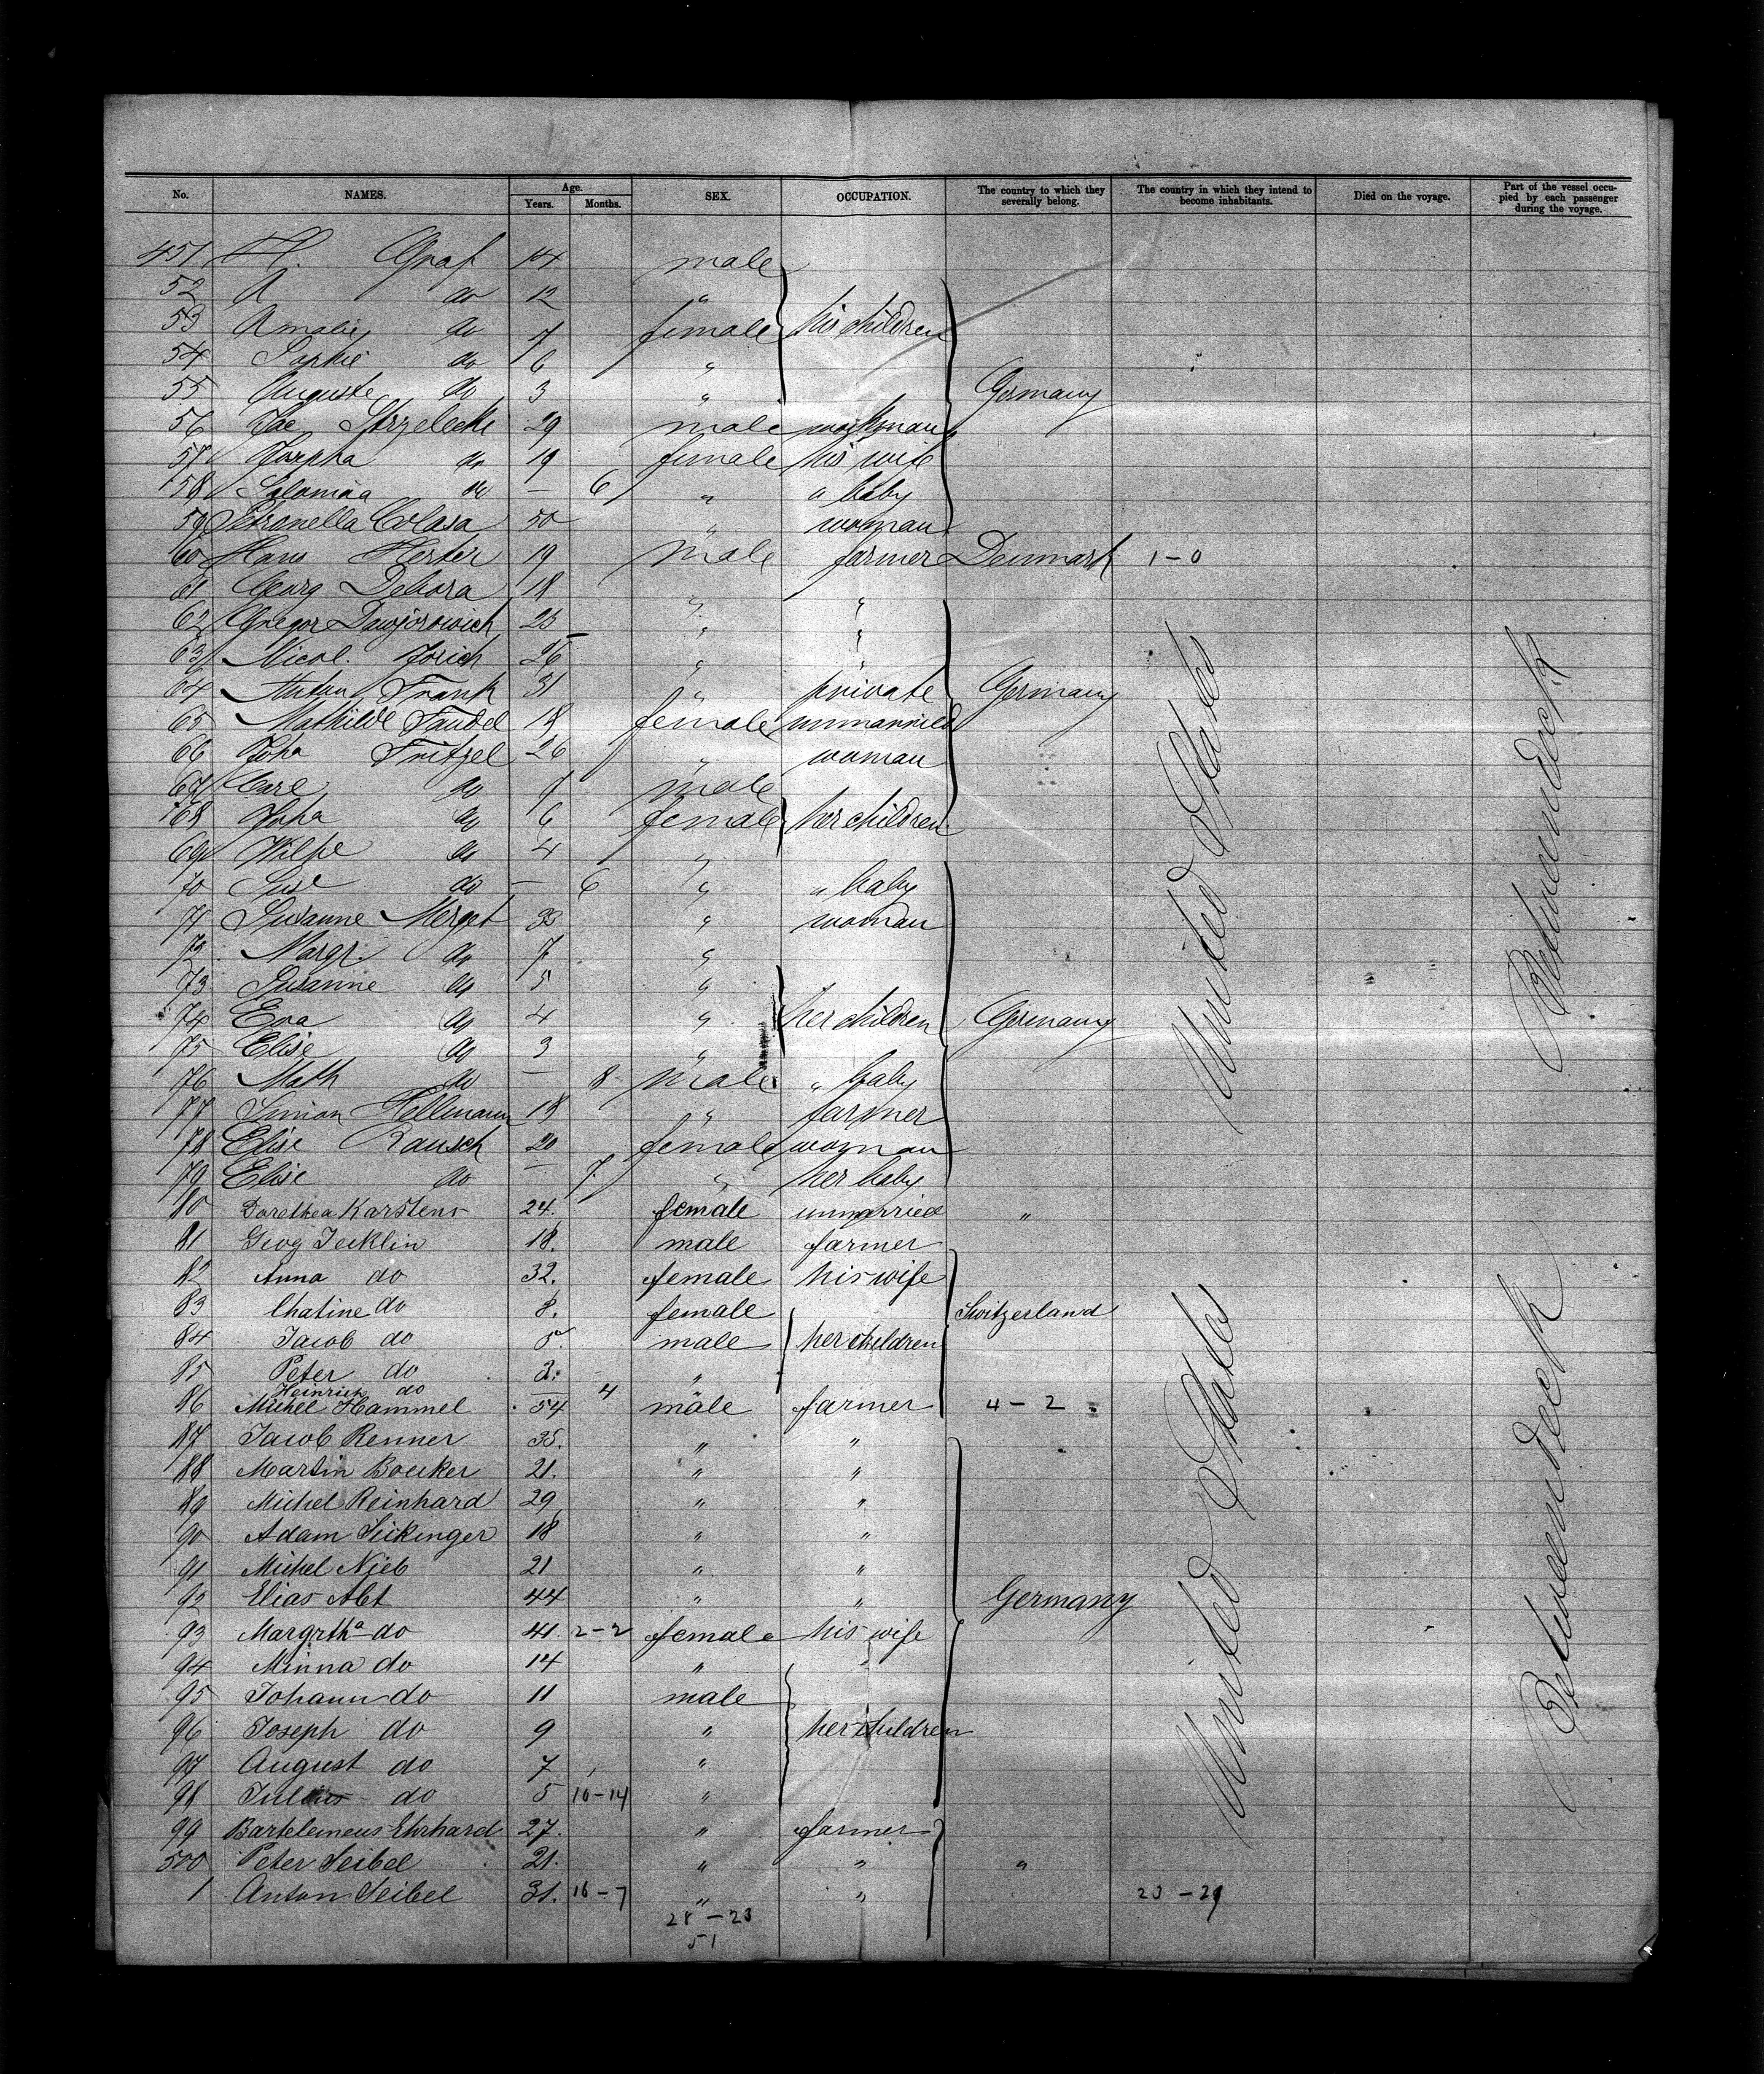 No. NAMES. Age. Years. Months. SEX. OCCUPATION. The country to which they severally belong. The country in which they intend to become inhabitants. Died on the voyage. Part of the vessel occupied by each passenger during the voyage.
451 H. Graf 14 male
52 A do 12 "
53 Amalie do 7 female his children
54 Sophie do 6 "
55 Auguste do 3 " Germany
56 Jac Strzelecki 29 male workman
57 do 19 female his wife
58 Salomea do — 6 " " baby
59 Petronella Colasa 50 " woman
60 Hans Hester 19 male farmer Denmark 1-0
61 Georg Debora 18 " "
62 Gregor 25 " "
63 Nicol. Jorich 26 " "
64 Anton Frank 31 " private Germany
65 Mathilde Faudel 18 female unmarried
66 Joha Fritzel 26 " woman
67 Carl do male
68 Joha do 6 female her children
69 do 4 "
70 Suse do — 6 " " baby
71 Susanne Merget 33 " woman
72 Margr. do 7 "
73 Susanne do 5 "
74 Eva do 4 " her children Germany
75 Elise do 3 "
76 Math do — 8 male " baby
77 Simon Hellmann 18 " farmer
78 Elise Rausch 20 female woman
79 Elise do — 7. " her baby
80 Dorethea Karstens 24. female unmarried "
81 Georg Jecklin 18. male farmer
82 Anna do 32. female his wife
83 Chatine do 8. female Switzerland
84 Jacob do 5. male her children
85 Peter do 2. "
Heinrich do — 4
86 Michel Hammel 54 male farmer 4-2
87 Jacob Renner 35. " "
88 Martin Boecker 21. " "
89 Michel Reinhard 29 " "
90 Adam Seikinger 18 " "
91 Michel Nieb 21 " "
92 Elias Abt 44 " " Germany
93 Margrtha do 41. 2-2 female his wife
94 Minna do 14 "
95 Johann do 11 male
96 Joseph do 9 " her children
97 August do 7 "
98 Julius do 5 10-14 "
99 Bartelemeus Ehrhard 27. " farmer
500 Peter Seibel 21. " " "
1 Anton Seibel 31. 16-7 " " 23-29
28-23
51
United States
Betweendeck
United States
Betweendeck